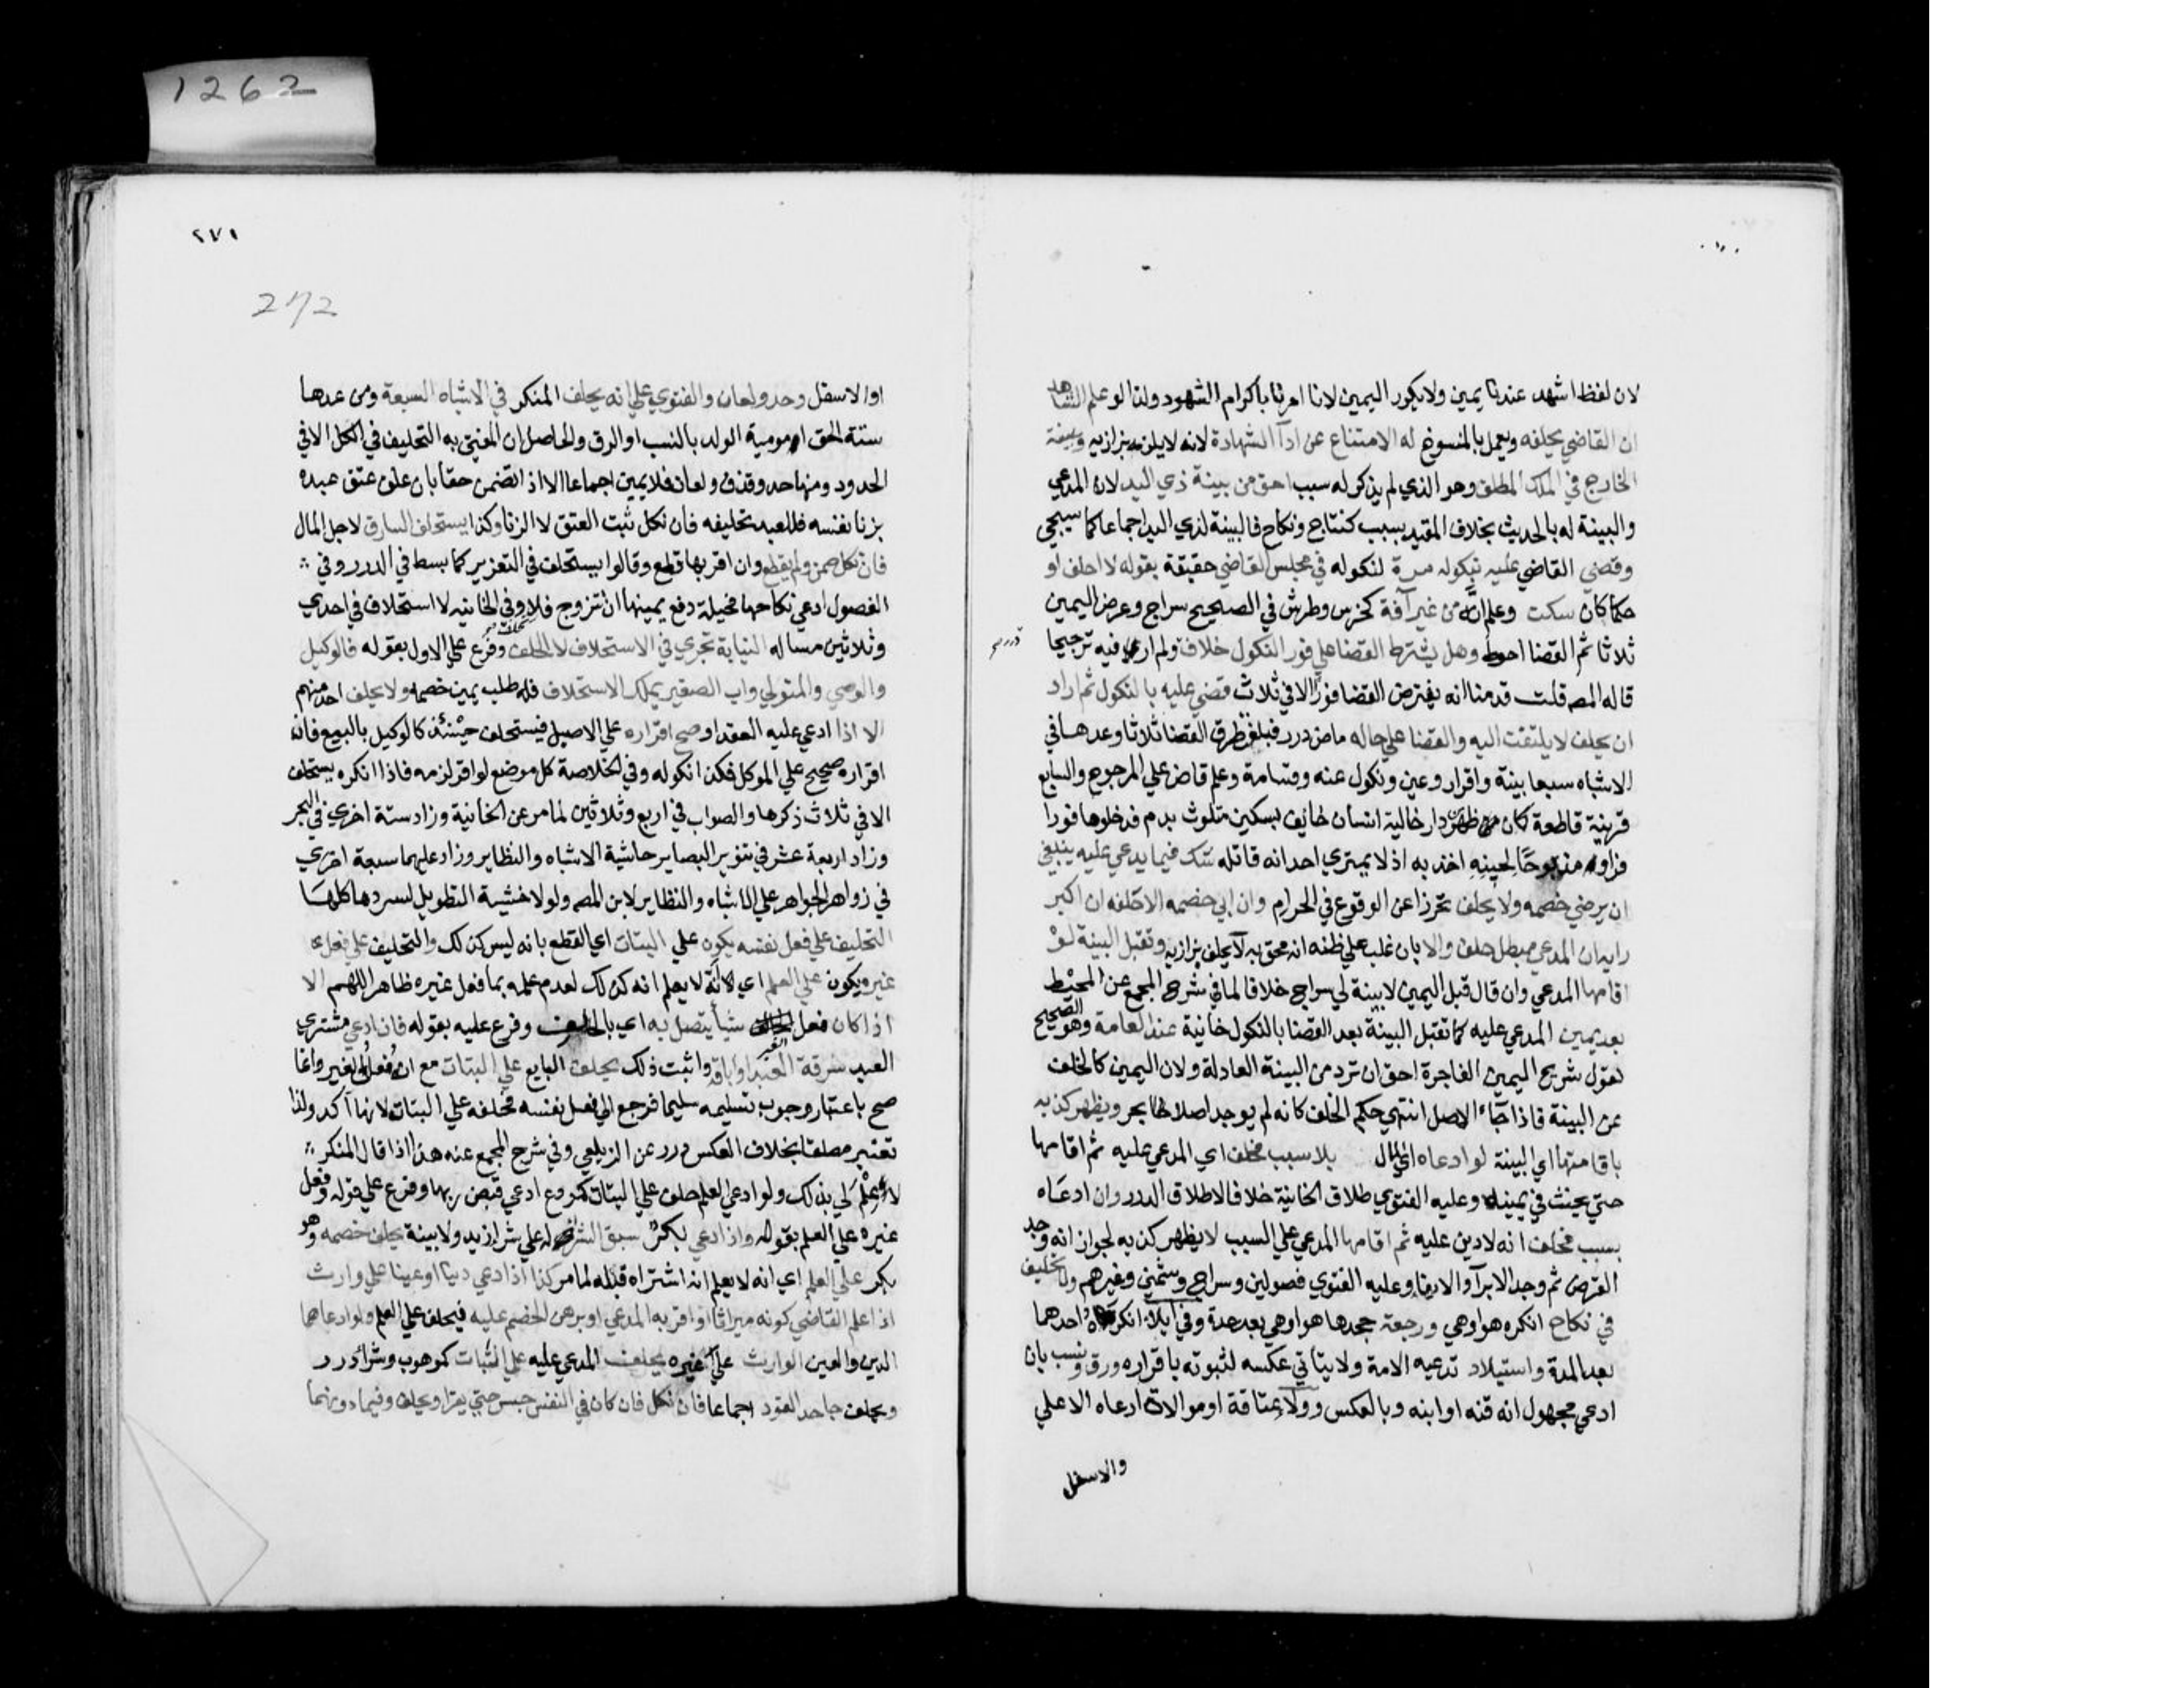 1262
لان لفظ اشهد عندنا يمين ولا يكرر اليمين لانا امرنا باكرام الشهود ولذا لو علم الشاهد
ان القاضي يحلفه ويعمل بالمنسوخ له الامتناع عن ادآ الشهادة لانه لا يلزمه بزازيه وبينة
الخارج في الملك المطلق وهو الذي لم يذكر له سبب احق من بينة ذي اليد لانه المدعي
والبينة له بالحديث بخلاف المقيد بسبب كنتاج ونكاح فالبينة لذي اليد اجماعا كما سيجي
وقضي القاضي عليه بنكوله مرة لنكوله في مجلس القاضي حقيقة بقوله لا احلف او
حكما كان سكت وعلم انه من غير آفة كخرس وطرش في الصحيح سراج وعرض اليمين
ثلاثا ثم القضا احوط وهل يشترط القضا علي فور النكول خلاف ولم ار فيه ترجيحا
قاله المصه قلت قدمنا انه يفترض القضا فورا الا في ثلاث قضي عليه بالنكول ثم اراد
ان يحلف لا يلتفت اليه والقضا علي حاله ماض درر فبلغت طرق القضا ثلاثا وعدها في
الاشباه سبعا بينة واقرار وعين ونكول عنه وقسامة وعلم قاض علي المرجوح والسابع
قرينة قاطعة كان ظهر من دار خالية انسان خايف بسكين متلوث بدم فدخلوها فورا
فراوا مذبوحا لحينه اخذ به اذ لا يمتري احد انه قاتله شك فيما يدعي عليه ينبغي
ان يرضي خصمه ولا يحلف تحرزا عن الوقوع في الحرام وان ابي خصمه الا حلفه ان اكبر
رايه ان المدعي مبطل حلف والا بان غلب علي ظنه انه محق به لا يحلف بزازيه وتقبل البينة لو
اقامها المدعي وان قال قبل اليمين لا بينة لي سراج خلافا لما في شرح المجمع عن المحيط
بعد يمين المدعي عليه كما تقبل البينة بعد القضا بالنكول خانية عند العامة وهو الصحيح
لقول شريح اليمين الفاجرة احق ان ترد من البينة العادلة ولان اليمين كالخلف
عن البينة فاذا جآء الاصل انتهي حكم الخلف كانه لم يوجد اصلا بحر ويظهر كذبه
باقامتها اي البينة لو ادعاه اي المال بلا سبب فحلف اي المدعي عليه ثم اقامها
حتي يحنث في يمينه وعليه الفتوي طلاق الخانية خلافا لاطلاق الدرر وان ادعاه
بسبب فحلف انه لا دين عليه ثم اقامها المدعي علي السبب لا يظهر كذبه لجواز انه وجد
القرض ثم وجد الابرآ او الايفا وعليه الفتوي فصولين وسراج وشمني وغيرهم ولا تحليف
في نكاح انكره هو او هي ورجعة جحدها هو او هي بعد عدة وفي ايلاء انكره احدهما
بعد المدة واستيلاد تدعيه الامة ولا يتاتي عكسه لثبوته باقراره ورق ونسب بان
ادعي مجهول انه قنه او ابنه وبالعكس وولاء عتاقة او موالاة ادعاه الاعلي
والاسفل
٢٧١
272
او الاسفل وحد ولعان والفتوي علي انه يحلف المنكر في الاشياء السبعة ومن عدها
ستة الحق امومية الولد بالنسب او الرق والحاصل ان المفتي به التحليف في الكل الا في
الحدود ومنها حد وقذف ولعان فلا يمين اجماعا الا اذا تضمن حقا بان علق عتق عبده
بزنا نفسه فللعبد تحليفه فان نكل ثبت العتق لا الزنا وكذا يستحلف السارق لاجل المال
فان نكل ضمن ولم يقطع وان اقر بها قطع وقالوا يستحلف في التعزير كما بسط في الدرر وفي
الفصول ادعي نكاحها فحيلة دفع يمينها ان تتزوج فلا يحلف وفي الخانيه لا استحلاف في احدي
وثلاثين مساله النيابة تجري في الاستحلاف لا الحلف وفرع علي الاول بقوله فالوكيل
والوصي والمتولي واب الصغير يملك الاستحلاف فله طلب يمين خصمه ولا يحلف احد منهم
الا اذا ادعي عليه العقد او صح اقراره علي الاصيل فيستحلف حينئذ كالوكيل بالبيع فان
اقراره صحيح علي الموكل فكذا نكوله وفي الخلاصة كل موضع لو اقر لزمه فاذا انكره يستحلف
الا في ثلاث ذكرها والصواب في اربع وثلاثين لما مر عن الخانية وزاد ستة اخري في البحر
وزاد اربعة عشر في تنوير البصاير حاشية الاشباه والنظاير وزاد عليهما سبعة اخري
في زواهر الجواهر علي الاشباه والنظاير لابن المصه ولولا خشية التطويل لسردها كلها
التحليف علي فعل نفسه يكون علي البتات اي القطع بانه ليس كذلك والتحليف علي فعل
غيره يكون علي العلم اي لانه لا يعلم انه كذلك لعدم علمه بما فعل غيره ظاهرا اللهم الا
اذا كان فعل الغير شيأ يتصل به اي بالحالف وفرع عليه بقوله فان ادعي مشتري
العبد سرقة العبد او اباقه واثبت ذلك يحلف البايع علي البتات مع انه فعل الغير وانما
صح باعتبار وجوب تسليمه سليما فرجع الي فعل نفسه فحلفه علي البتات لانها آكد ولذا
تعتبر مطلقا بخلاف العكس درر عن الزيلعي وفي شرح المجمع عنه هذا اذا قال المنكر
لا علم لي بذلك ولو ادعي العلم حلف علي البتات كمودع ادعي قبض ربها وفرع علي قوله وفعل
غيره علي العلم بقوله واذا ادعي بكر سبق الشراء له علي شرا زيد ولا بينة يحلف خصمه وهو
بكر علي العلم اي انه لا يعلم انه اشتراه قبله لما مر كذا اذا ادعي دينا او عينا علي وارث
اذا علم القاضي كونه ميراثا او اقر به المدعي او برهن الخصم عليه فيحلف علي العلم ولو ادعاهما
الدين والعين الوارث علي غيره يحلف المدعي عليه علي البتات كموهوب وشراء درر
ويحلف جاحد القود اجماعا فان نكل فان كان في النفس حبس حتي يقر او يحلف وفيما دونهما